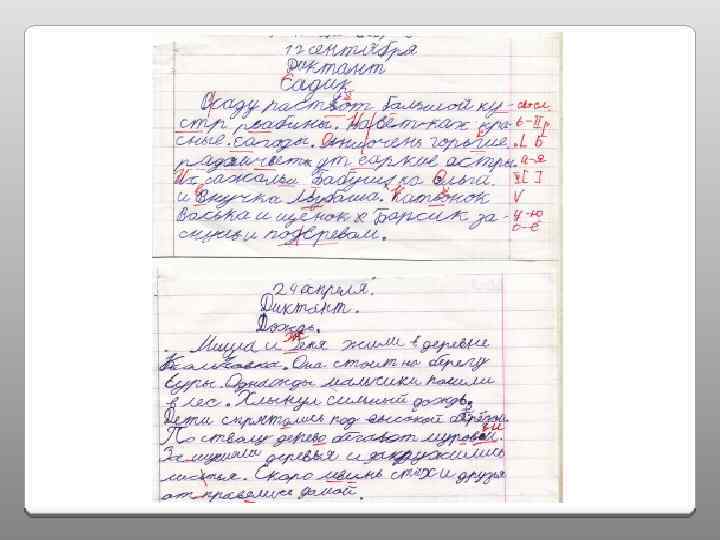 12 сентября
Диктант
Садик
Осаду раствот большой ку-
стр рябины. На ветках кра
сные. сагоды. Они очень горькие.
рядом цветут саркие астры.
Их сажали бабушка Ольга.
и внучка Любаша. Катвонок
Васька и щенок Барсик за-
снули под деревом.
24 апреля.
Диктант.
Дождь.
Миша и Петя жили в деревне
Калиновка. Она стоит на берегу
Суры. Однажды мальчики пошли
в лес. Хлынул силный дождь.
Дети спрятались под высокой берёзой.
По стволу дерево бегают муровьи.
Зашумели деревья и закружились
листья. Скоро ливнь стих и друзья
отправились домой.